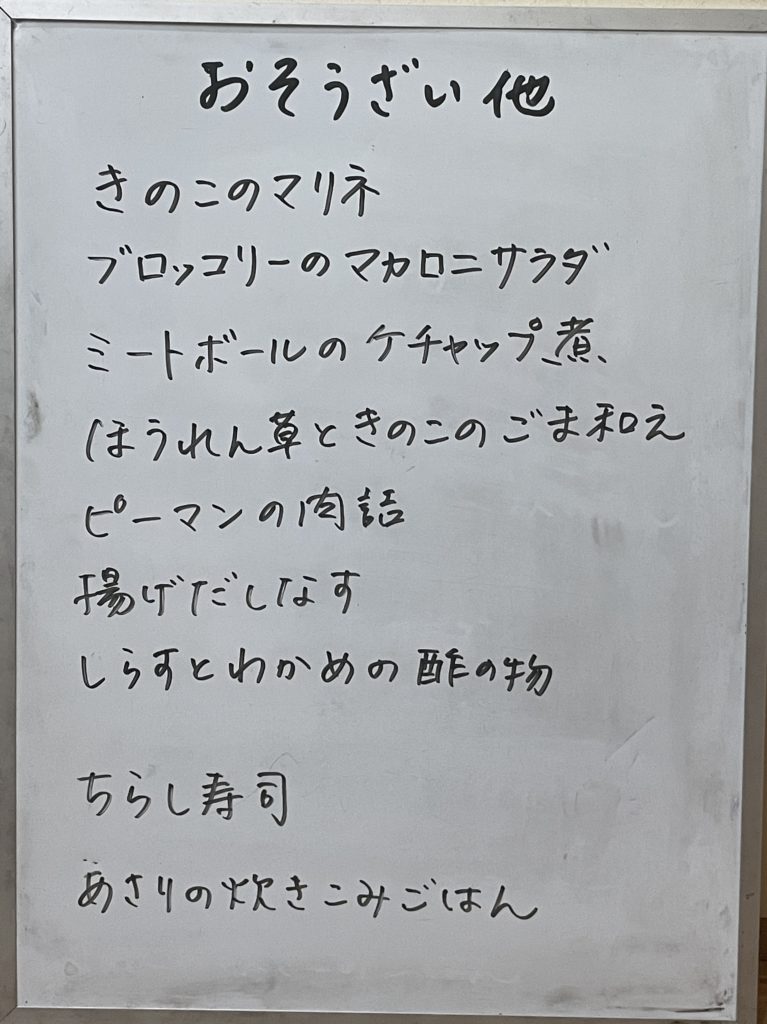 おそうざい他
きのこのマリネ
ブロッコリーのマカロニサラダ
ミートボールのケチャップ煮
ほうれん草ときのこのごま和え
ピーマンの肉詰
揚げだしなす
しらすとわかめの酢の物
ちらし寿司
あさりの炊きこみごはん